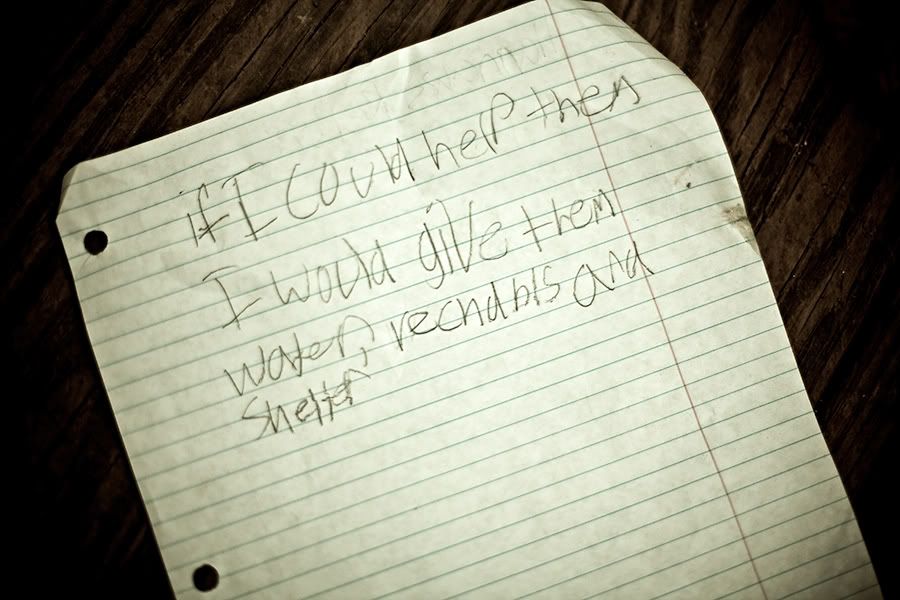 if I could help them
I would give them
water, vechabls and
Shelter